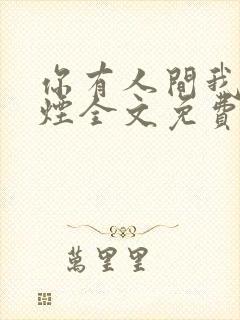 你有人間我
煙全文免費
萬里里